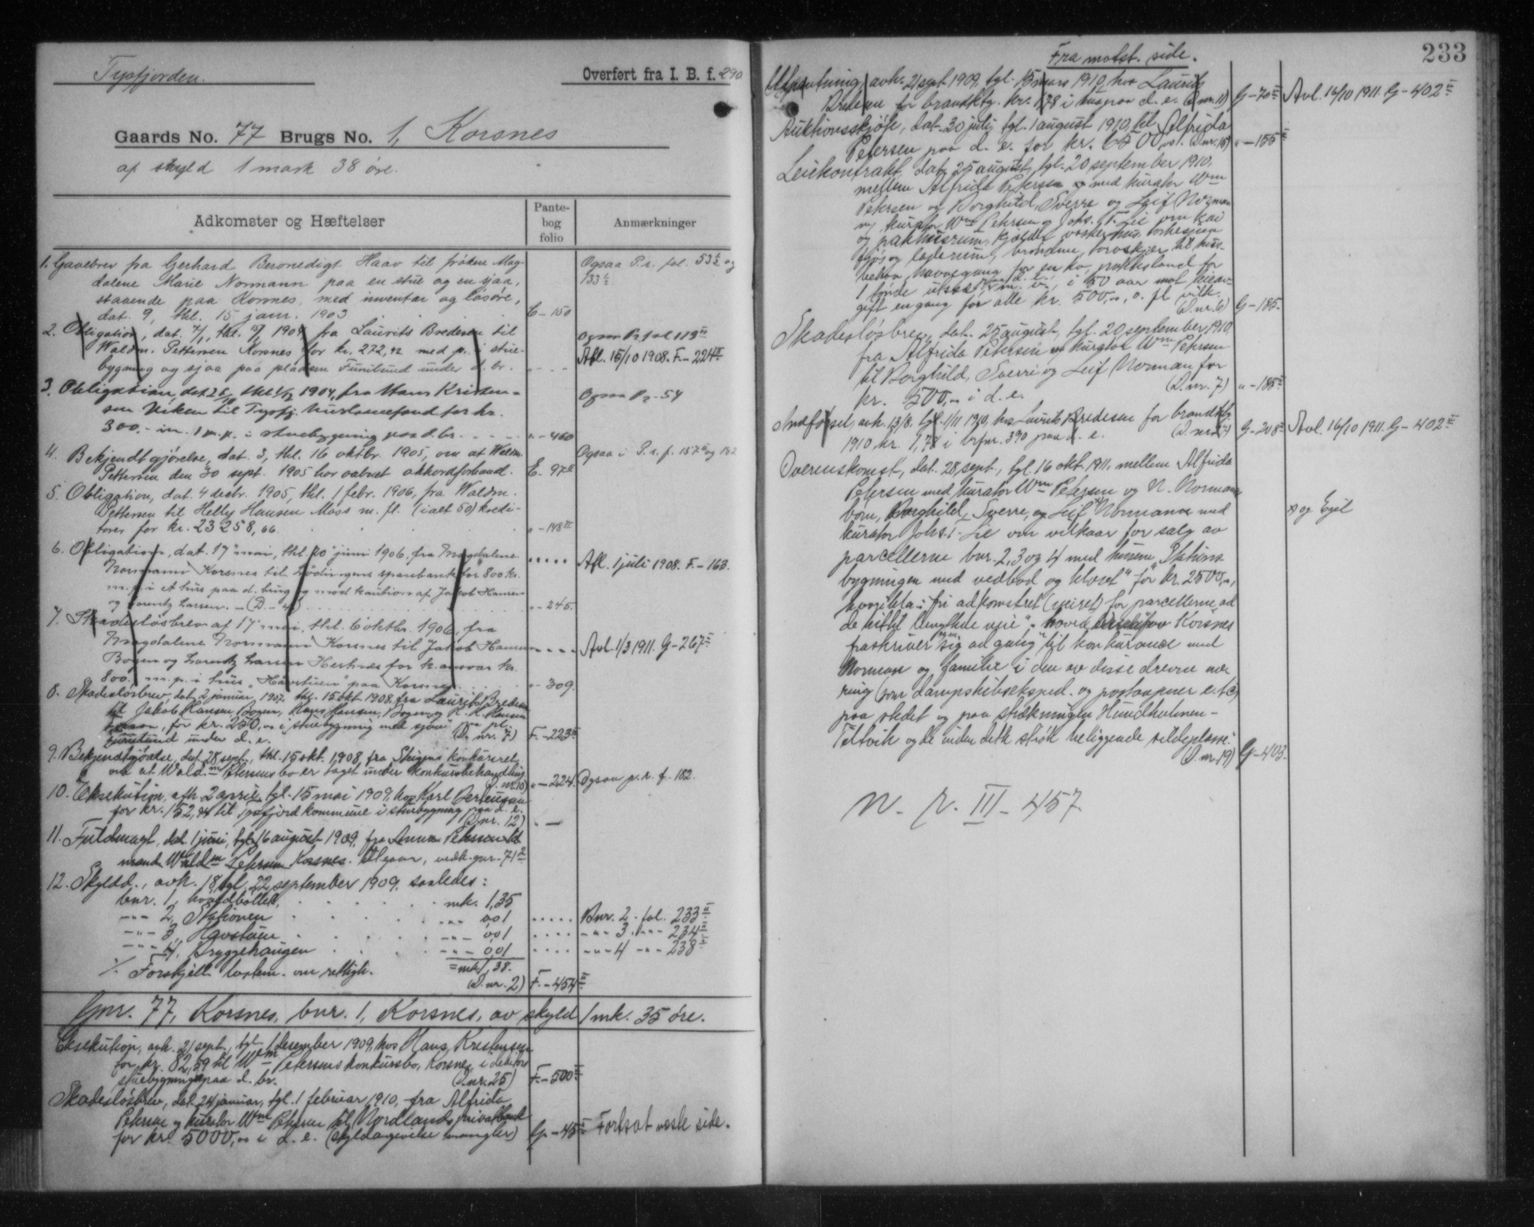 Tysfjorden.
Overført fra I. B. f. 290
Gaards No. 77 Brugs No. 1, Korsnes
af skyld 1 mark 38 øre.
Adkomster og Hæftelser
Pante-
bog
folio
Anmærkninger
1. Gavebrev fra Gerhard Benonedigt Haav til frøken Mag-
dalene Marie Normann paa en stue og en sjaa,
staaende paa Korsnes, med inventar og løsøre,
dat. 9, thl. 15 janr. 1903
E - 150
Ogsaa P. r. fol. 53 og
133
2. Obligation, dat. 7/1, thl. 1904 fra Laurits Bredesen til
Waldm. Pettersen Korsnes for kr. 272,92 med p. i stue-
bygning og sjaa paa pladsen Funilund under d. br.
Ogsaa Pr. fol 113
Afl. 15/10 1908. F. - 224
3. Obligation, thl. 1904, fra Hans Kristen-
sen Viken til Tysfj. huslaanefond for kr.
300.- m. 1 p.p. i stuebygning paa d. br.
" - 460
Ogsaa Pr - 54
4. Bekjendtgjørelse, dat. 3, thl. 16 oktbr. 1905, om at Waldm.
Pettersen den 30 sept. 1905 har aabnet akkordforhand.
E. 97
Ogsaa i P. r. f. 157 og 162
5. Obligation, dat. 4 decbr. 1905, thl. 1 febr. 1906, fra Waldm.
Pettersen til Helly Hansen Moss m. fl. (ialt 50) kredi-
torer for kr. 23 258,66
" - 148
6. Obligation, dat. 17 mai, thl. 10 juni 1906, fra Magdalene
Normann Korsnes til Lødingens sparebank for 800 kr.
m. p. i et hus paa d. brug og mod kaution af Jakob Hansen
og Lorentz Larsen
" - 245.
Afl. 1 juli 1908. F. - 163.
7. Skadesløsbrev af 17 mai, thl. 6 oktbr. 1906, fra
Magdalene Normann Korsnes til Jakob Hansen
Bogen og Lorentz Larsen Hestnes for k. ansvar kr.
800. m. p. i hus "Havstuen" paa Korsnes
" - 309.
Avl. 1/3 1911. G - 267
8. Skadesløsbrev, dat. 2 januar, 1907. thl. 15 okt. 1908. fra Laurits Bredesen
til Jakob Hansen Bogen, Hans Hansen, Bogen og
for kr. 250, m. p. i stuebygning med sjaa paa pl.
Funilund under d. e. (D. nr. 7)
F. - 223
9. Bekjendtgjørelse, dat 28 sept., thl. 15 okt. 1908, fra Steigens konkursret,
om at Waldm. Petersens bo er taget under konkursbehandling
(D. nr. 10)
" - 224.
Ogsaa p. r. f. 182.
10. Eksekution, afh. 2 april, tgl. 15 mai 1909, hos Karl
for kr. 152,24 til Tysfjord kommune i stuebygning paa d. e.
(D. nr. 12)
11. Fuldmagt, dat 1 juni, tgl. 16 august 1909, fra
mand Waldm Petersen Korsnes. Utgaar, vedk. gnr. 71
12. Skyldd., avh. 18, tgl. 22 september 1909, saaledes:
bnr. 1, hovedbøllet, mk. 1,35
" 2, Stationen " 001
" 3, Havstuen " 001
" 4, Bryggehaugen " 001
= mk. 1,38.
Bnr. 2. fol. 233
" 3. " 234
" 4 " 238
Forskjell. bestem. om rettigh.
(D. nr. 2)
F. - 454
Gnr. 77, Korsnes, bnr. 1, Korsnes, av skyld 1 mk. 35 øre.
Eksekution, avh. 21 sept., tgl. 1 desember 1909, hos Hans Kristensen
for kr. 82,59 til Wm Petersens konkursbo, Korsnes, i debitors
stuebygning paa d. br. (D. nr. 25)
F. - 500
Skadesløsbrev, dat. 24 januar, tgl. 1 februar 1910, fra Alfrida
Petersen og kurator Wm Petersen til Nordlands privatbank
for kr. 5000,00 i d. e. (skyldangivelse mangler)
G. - 45
Fortsat næste side.
233
Fra motst. side.
Utpantning, avh. 21 sept 1909, tgl. 15 mars 1910 hos Laurits
Bredesen for brandktg. kr. 1,78 i hus paa d. e. (D. nr. 11)
G - 70
Avl. 16/10 1911. G - 402
Auktionsskjøte, dat. 30 juli, tgl. 1 august 1910, til Alfrida
Petersen paa d. e. for kr. 6500,00. (D. nr. 18)
" - 155
Leiekontrakt, dat. 25 august, tgl. 20 september 1910,
mellem Alfrida Petersen med kurator Wm
Petersen og Borghild, Sverre og Leif Norman
m/ kurator, Wm Petersen og Johs. F. Lie om kai
og pakhusrum, kjælder,
1 tønde utsæd m. v., i 50 aar mot leieav-
gift en gang for alle kr. 500,00, o. fl. vilk.
(D. nr. 6)
G - 185.
Skadesløsbrev, dat. 25 august, tgl. 20 september 1910
fra Alfrida Petersen m/ kurator Wm Petersen
til Borghild, Sverre og Leif Norman for
kr. 500,00 i d. e. (D. nr. 7)
" - 185
Indførsel avh. 13/8, tgl. 1/11 1910, hos Laurits Bredesen for brandktg.
1910 kr. 1,78 i brpr. 390 paa d. e.
G - 208
Avl. 16/10 1911. G - 402
Overenskomst, dat. 28 sept., tgl. 16 okt. 1911, mellem Alfrida
Petersen med kurator Wm Petersen og N. Normans
børn, Borghild, Sverre, og Leif x) Normann med
kurator Johs. Lie om vilkaar for salg av
parcellerne bnr. 2, 3 og 4 med husene, "Stations
bygningen med vedbod og kloset" for kr. 2500,00,
x) og Egil
Norman og familie i den av disse drevne næ-
ring som dampskibseksped. og postaapner etc.
paa stedet og paa strækningen Hundholmen -
(D. nr. 19)
G - 403.
N. r. III - 457